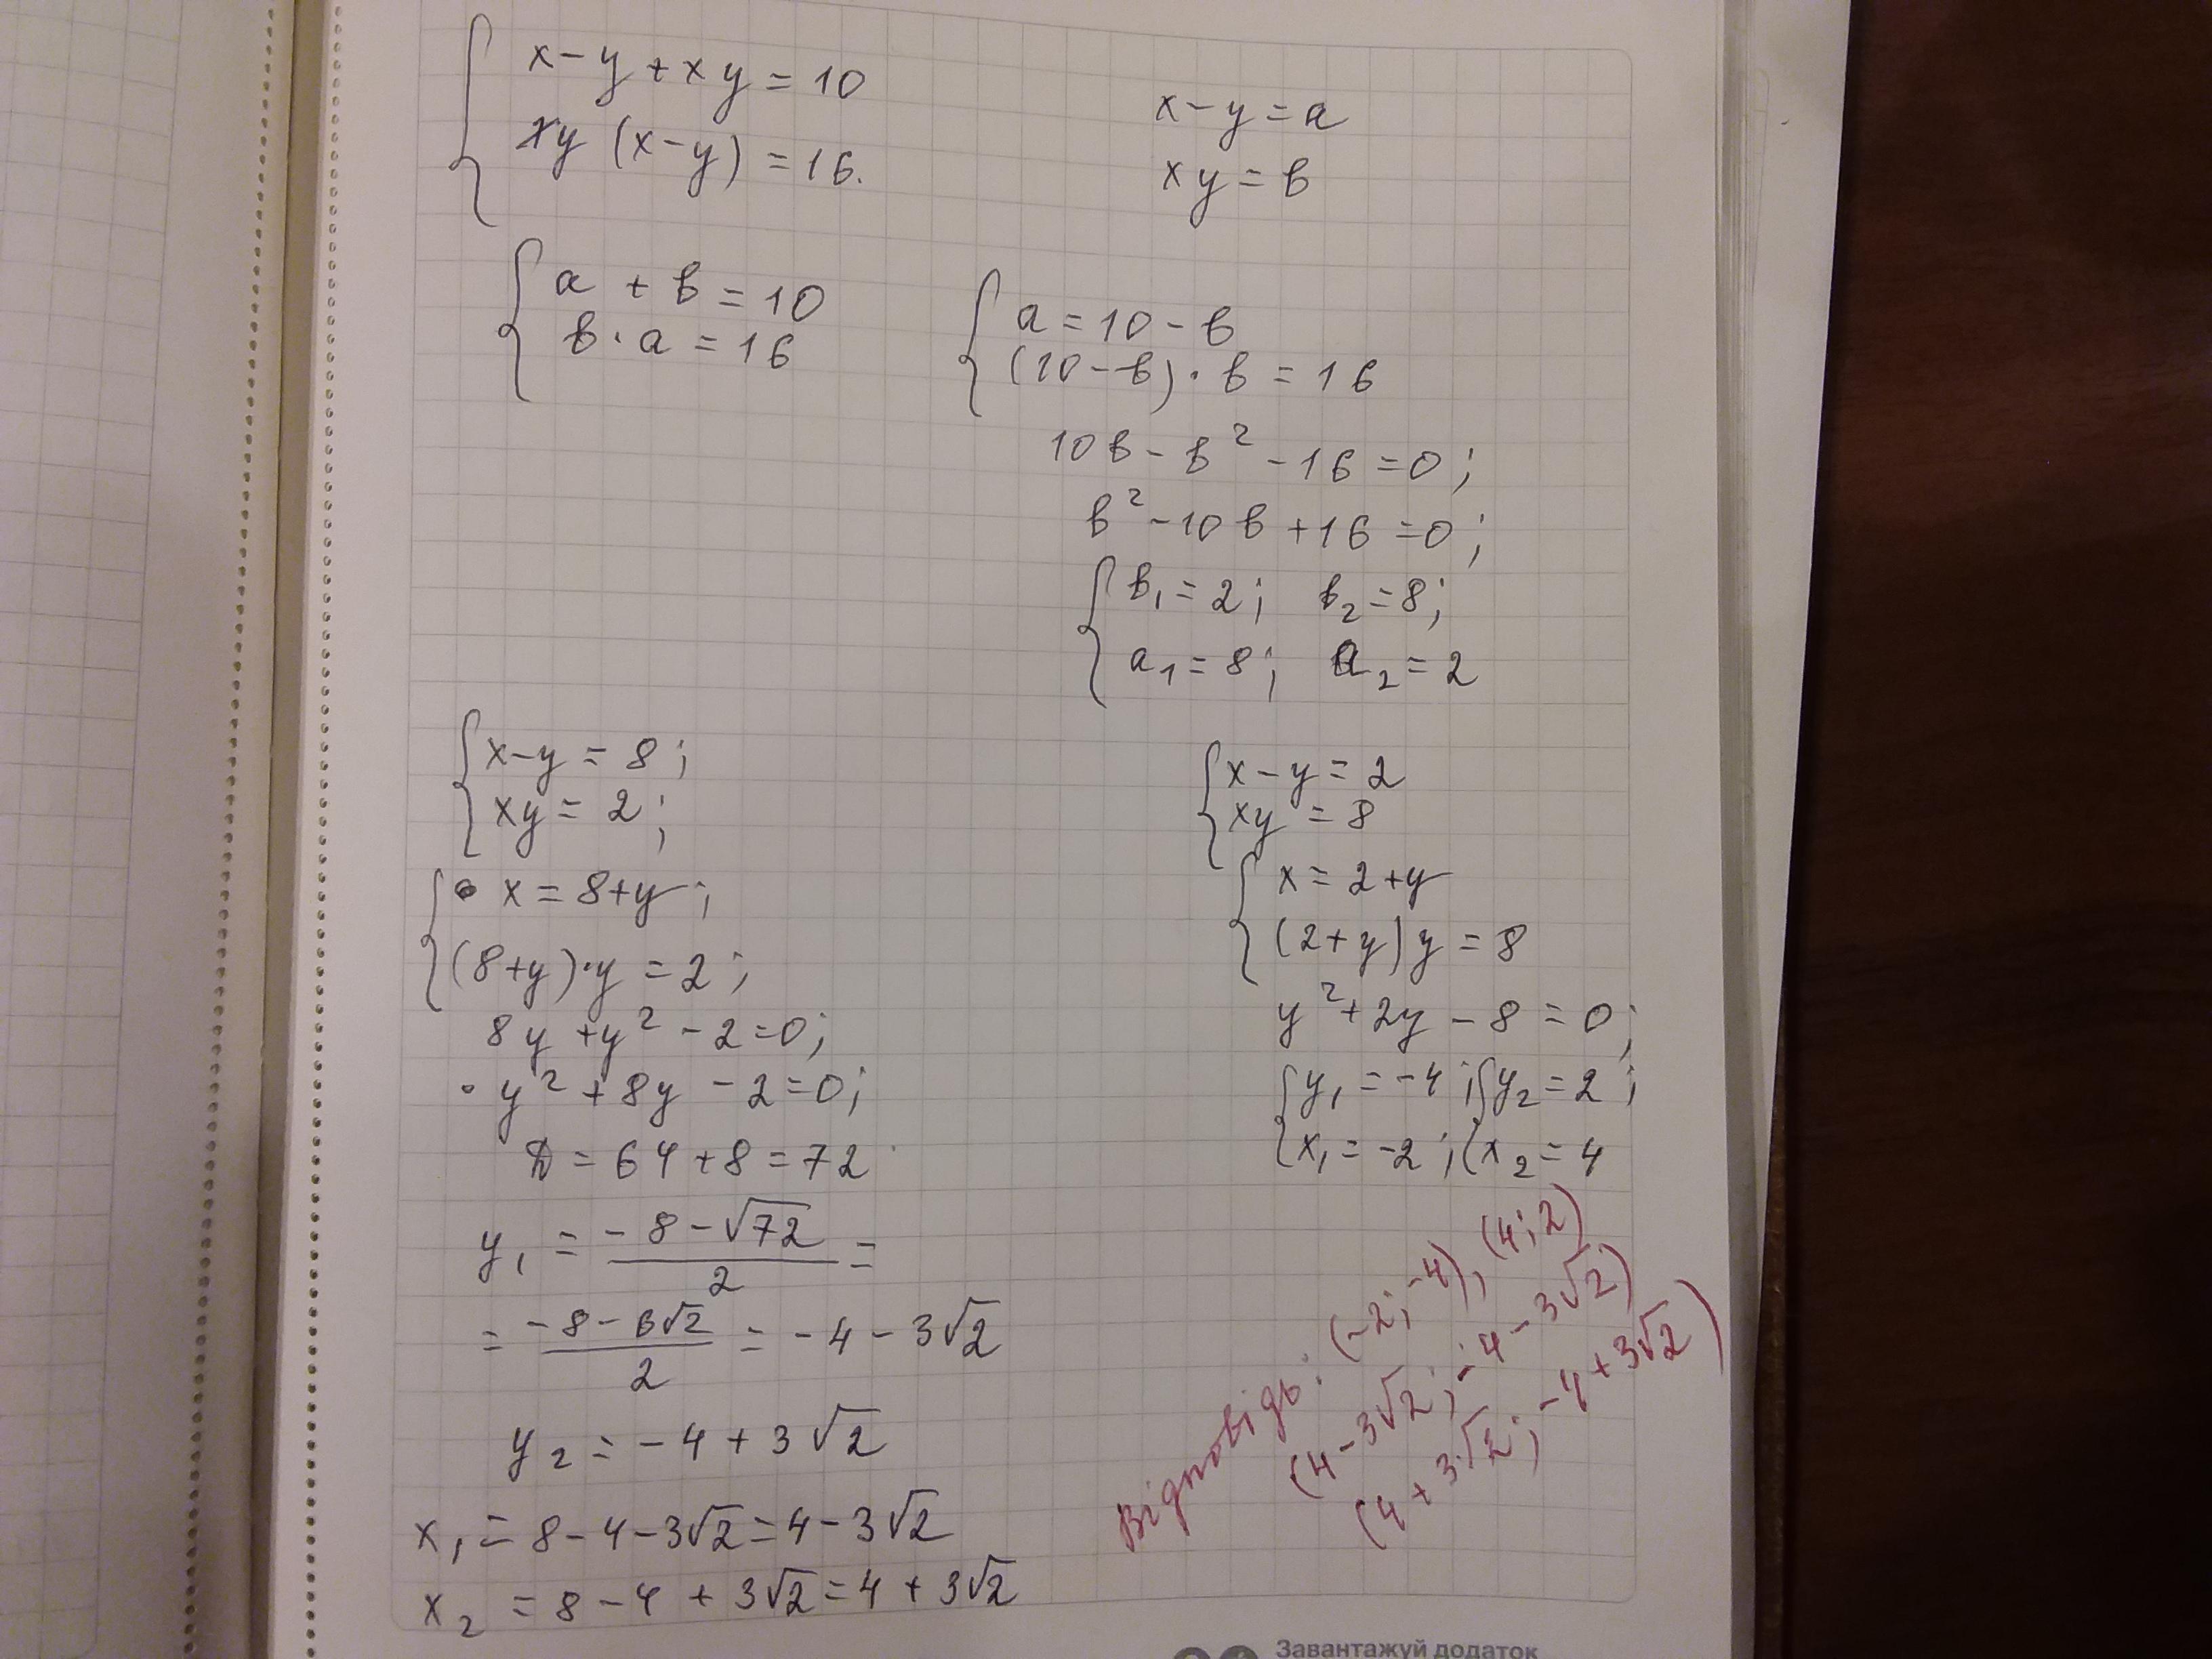 x - y + xy = 10
xy (x - y) = 16.
x - y = a
xy = b
a + b = 10
b · a = 16
a = 10 - b
(10 - b) · b = 16
10b - b² - 16 = 0;
b² - 10b + 16 = 0;
b₁ = 2; b₂ = 8;
a₁ = 8; a₂ = 2
x - y = 8;
xy = 2;
x = 8 + y;
(8 + y) · y = 2;
8y + y² - 2 = 0;
y² + 8y - 2 = 0;
D = 64 + 8 = 72
y₁ = (-8 - √72)/2 =
= (-8 - 6√2)/2 = -4 - 3√2
y₂ = -4 + 3√2
x₁ = 8 - 4 - 3√2 = 4 - 3√2
x₂ = 8 - 4 + 3√2 = 4 + 3√2
x - y = 2
xy = 8
x = 2 + y
(2 + y) y = 8
y² + 2y - 8 = 0;
y₁ = -4; y₂ = 2;
x₁ = -2; x₂ = 4
Відповідь: (-2; -4), (4; 2)
(4 - 3√2; -4 - 3√2)
(4 + 3√2; -4 + 3√2)
Завантажуй додаток